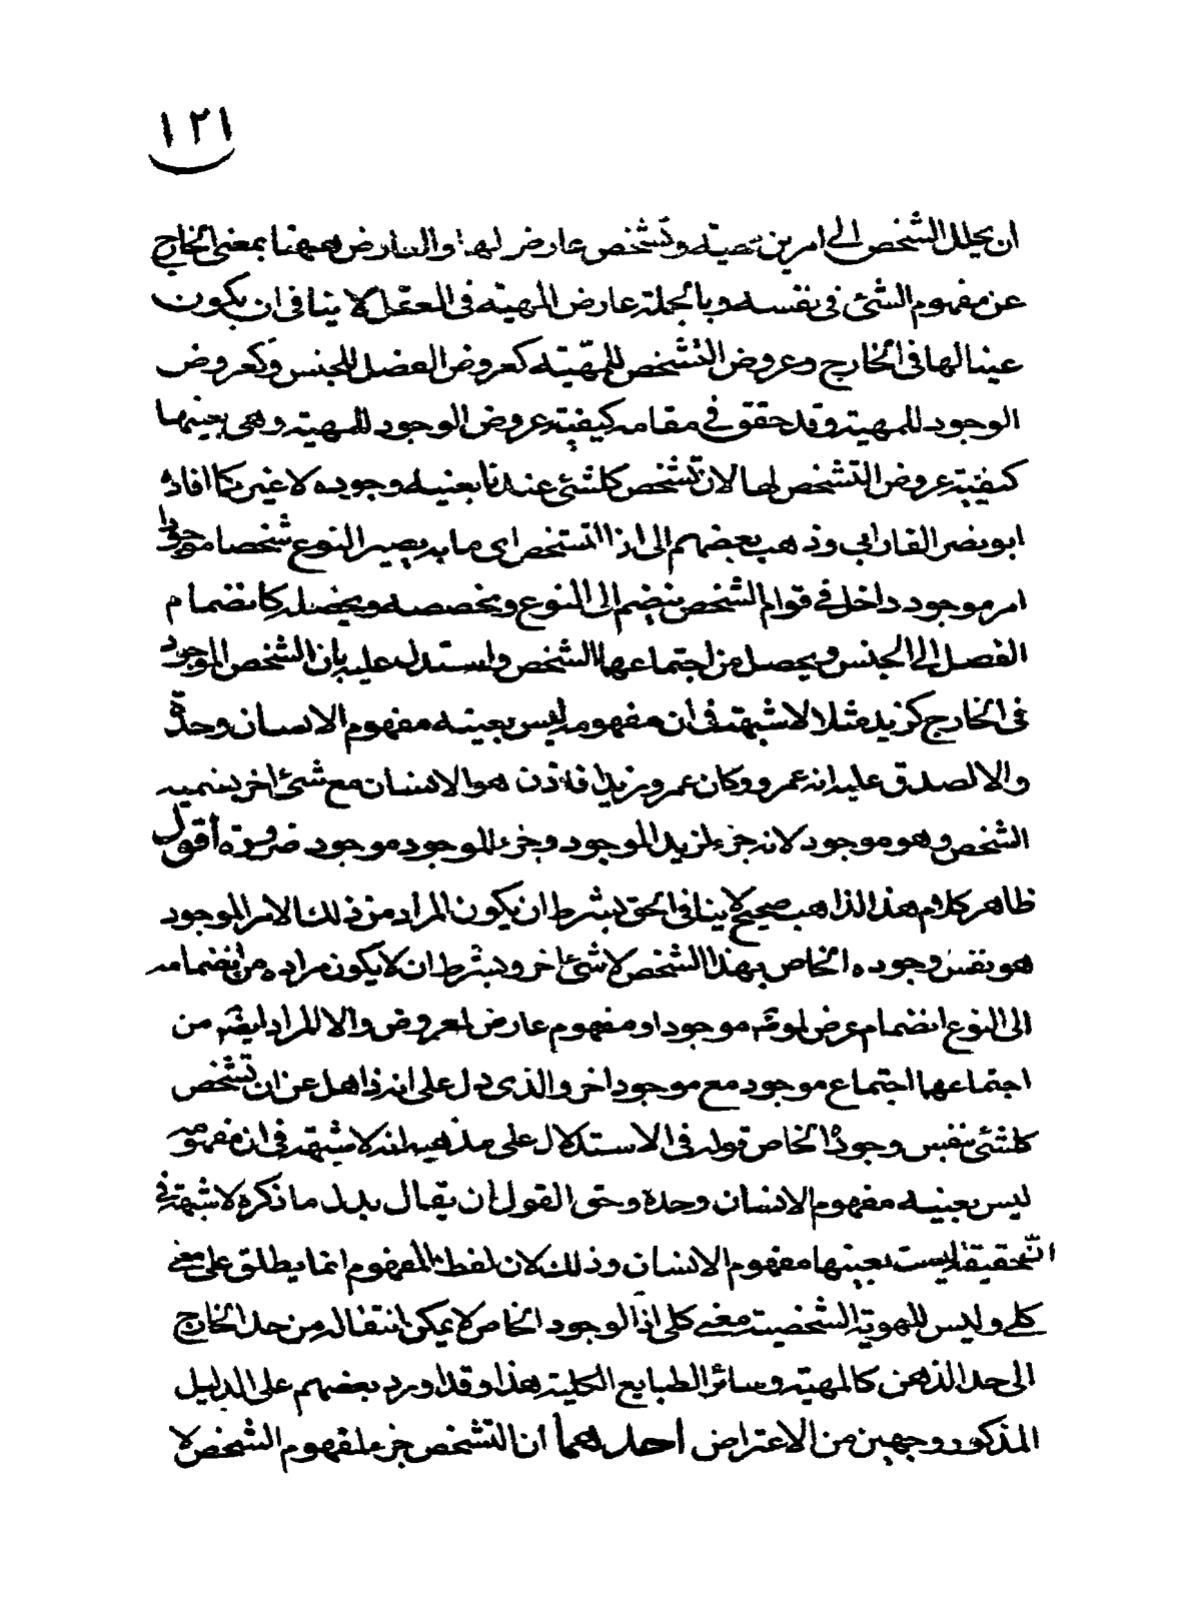 ١٢١
ان يحلل الشخص الى امرين مهيته وتشخص عارض لها والعارض هيهنا بمعنى الخارج
عن مفهوم الشئ فى نفسه وبالجملة عارض المهية فى العقل لا ينافى ان يكون
عينا لها فى الخارج وعروض التشخص للمهيّة كعروض الفصل للجنس وكعروض
الوجود للمهية وقد حقق فى مقامه كيفية عروض الوجود للمهية وهى بعينها
كيفية عروض التشخص لها لان تشخص كلشئ عندنا بعينه وجوده لا غير كما افاده
ابو نصر الفارابى وذهب بعضهم الى اذا التشخص اى ما به يصير النوع شخصا موجودا
امر موجود داخل فى قوام الشخص ينضم الى النوع ويخصصه ويحصله كانضمام
الفصل الى الجنس ويحصل من اجتماعهما الشخص واستدل عليه بان الشخص الموجود
فى الخارج كزيد مثلا لا شبهة فى ان مفهومه ليس بعينه مفهوم الانسان وحدّه
والا لصدق عليه انه عمرو وكان عمرو زيدا فاذن هو الانسان مع شئ اخر يسميه
الشخص وهو موجود لانه جزء لزيد الموجود وجزء الموجود موجود ضرورة أقول
ظاهر كلام هذا الذاهب صحيح لا ينافى الحق بشرط ان يكون المراد من ذلك الامر الموجود
هو نفس وجوده الخاص بهذا الشخص لا شئ اخر وبشرط ان لا يكون مراده من انضمامه
الى النوع انضمام عرض لموضوعه موجودا ومفهوم عارض لمعروض والا المراد ايضا من
اجتماعهما اجتماع موجود مع موجود اخر والذى دل على انه ذاهل عن ان تشخص
كلشئ بنفس وجوده الخاص قوله فى الاستدلال على مذهبه انه لا شبهة فى ان مفهومه
ليس بعينه مفهوم الانسان وحده وحق القول ان يقال بدل ما ذكره لا شبهة فى
ان حقيقة ليست بعينها مفهوم الانسان وذلك لان لفظ المفهوم انما يطلق على معنى
كلى وليس للهوية الشخصية معنى كلى اذ الوجود الخاص لا يمكن انتقاله من حد الخارج
الى حد الذهن كالمهية وسائر الطبايع الكلية هذا وقد اورد بعضهم على الدليل
المذكور وجهين من الاعتراض احدهما ان التشخص جزء لمفهوم الشخص لا